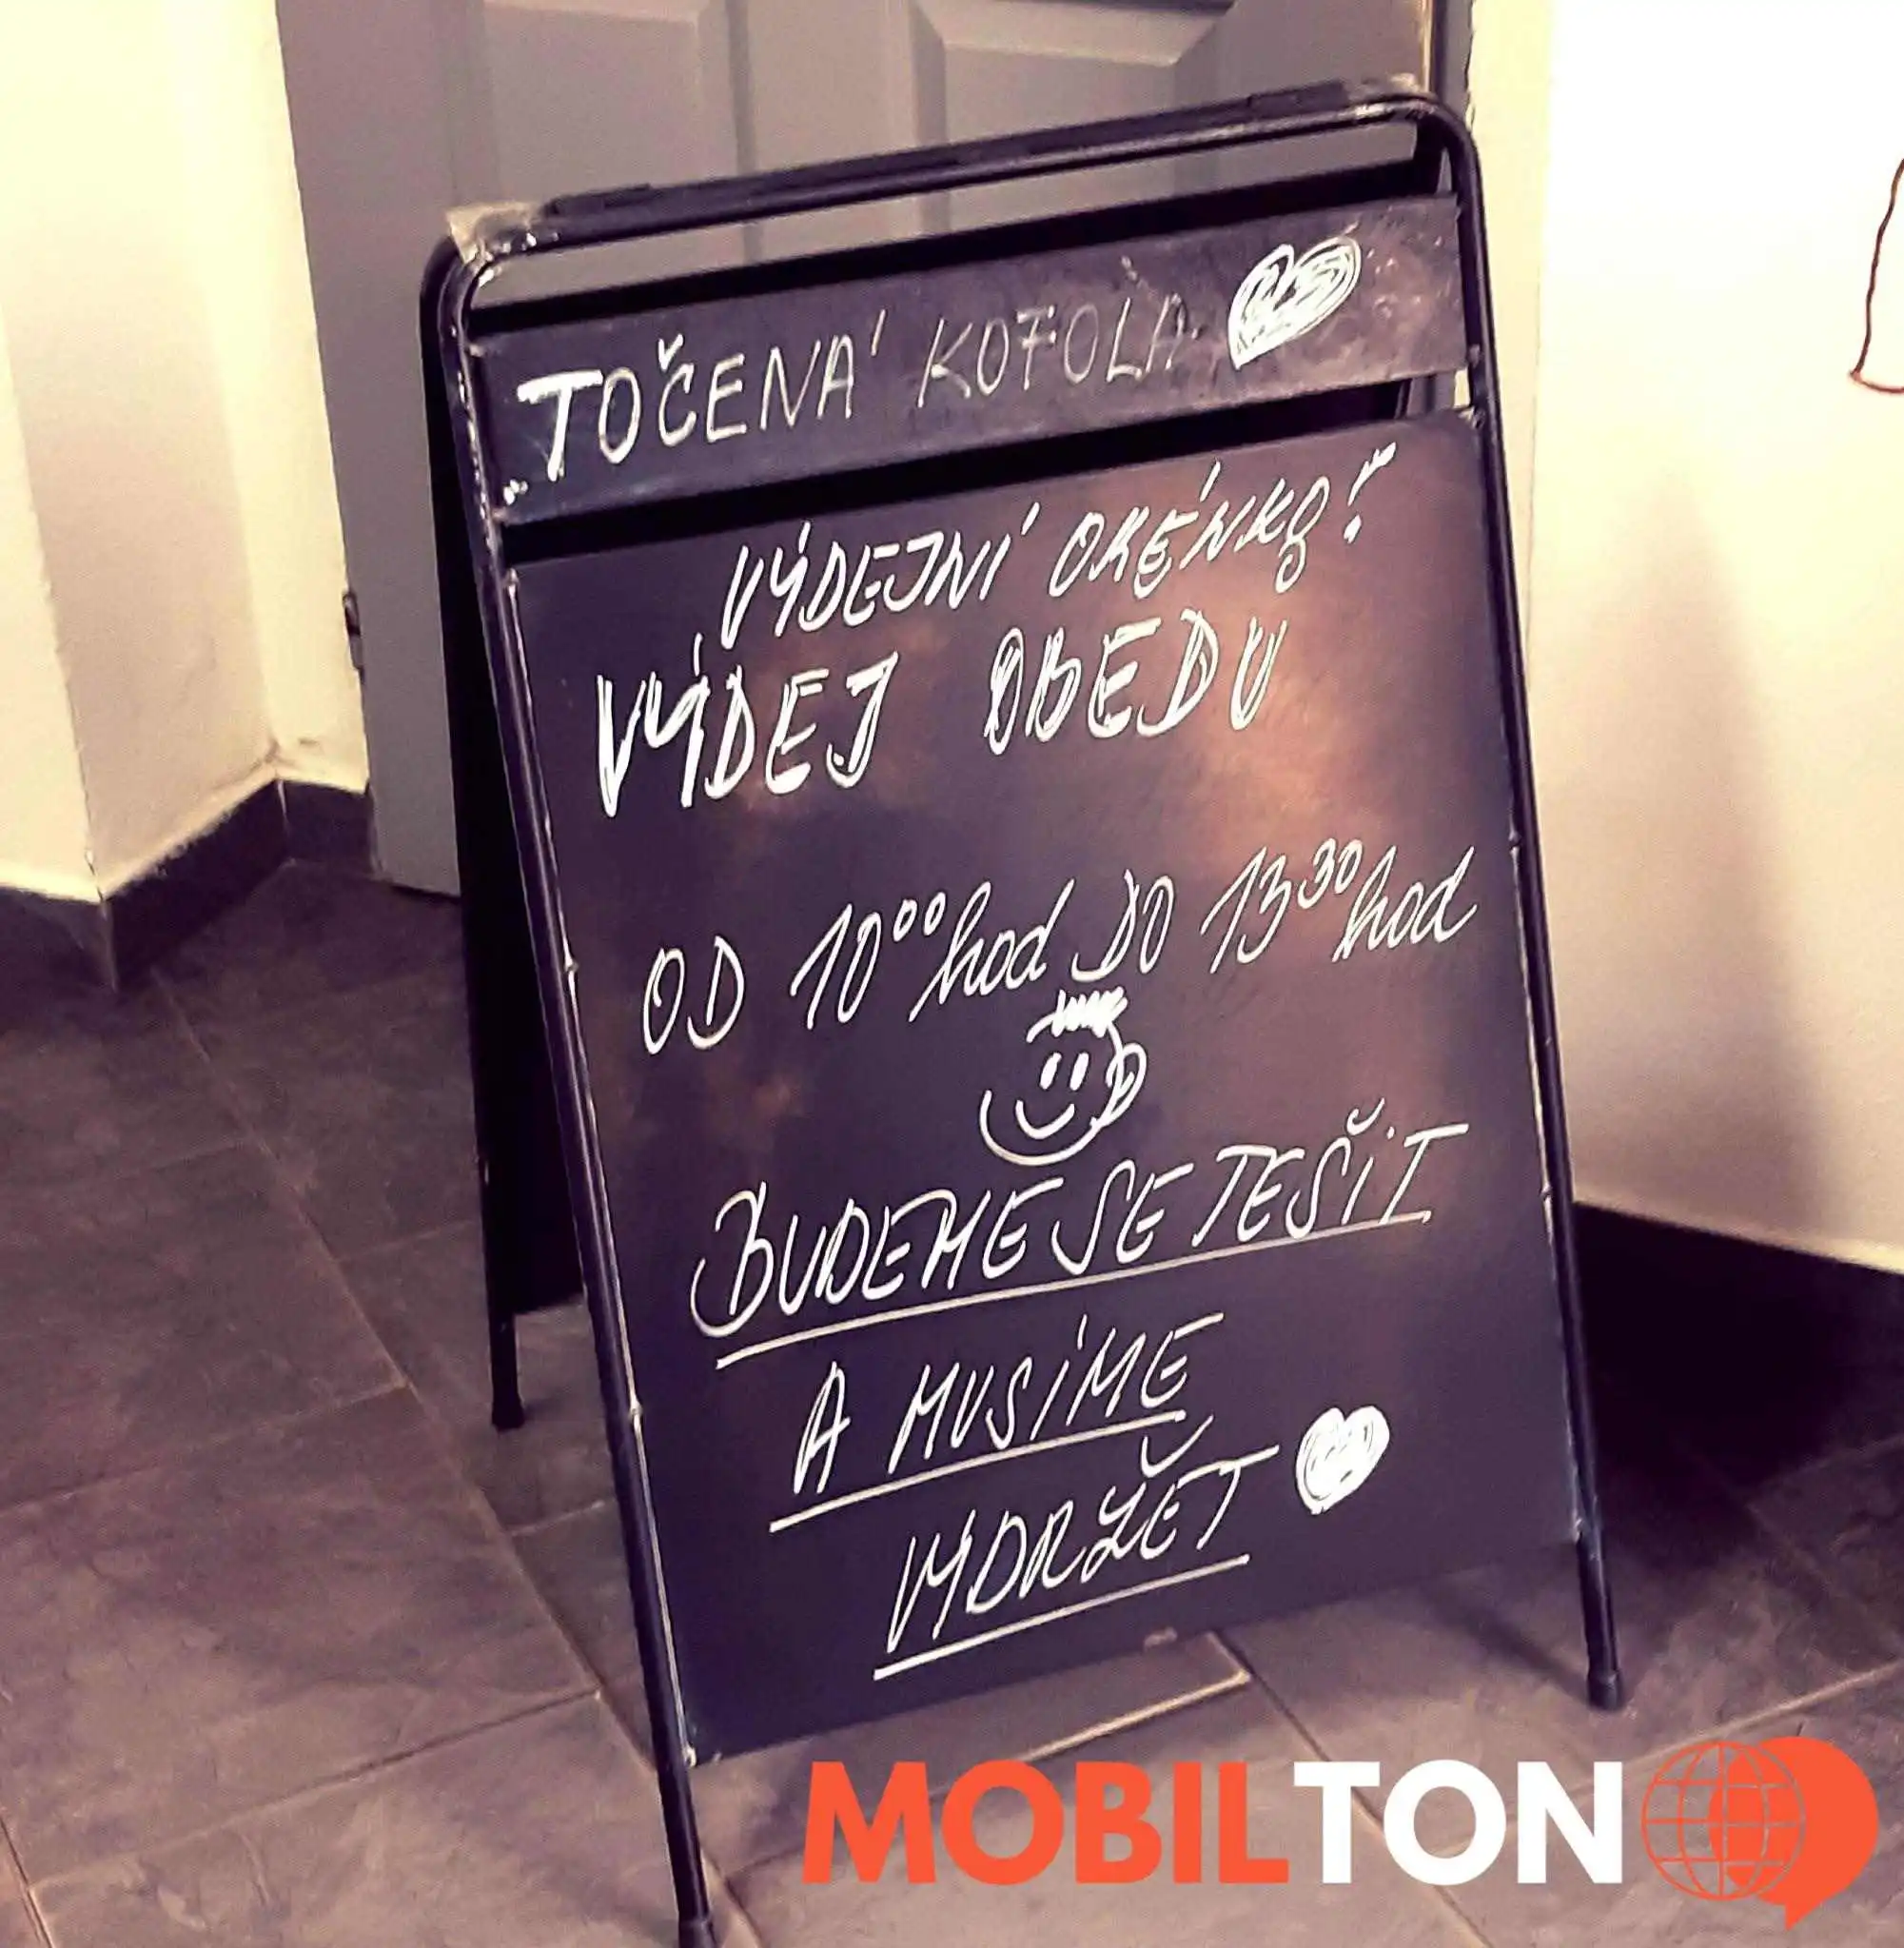 TOČENÁ KOFOLA
VÝDEJNÍ OKÉNKO!
VÝDEJ OBEDU
OD 10⁰⁰ hod DO 13³⁰ hod
BUDEME SE TEŠIT
A MUSÍME
VYDRŽET
MOBILTON